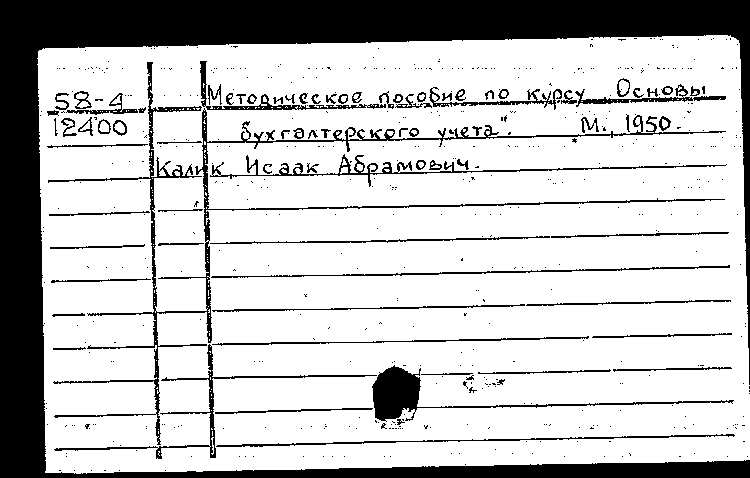 58-4 Методическое пособие по курсу Основы
12400 бухгалтерского учета". М., 1950.
Калик, Исаак Абрамович.